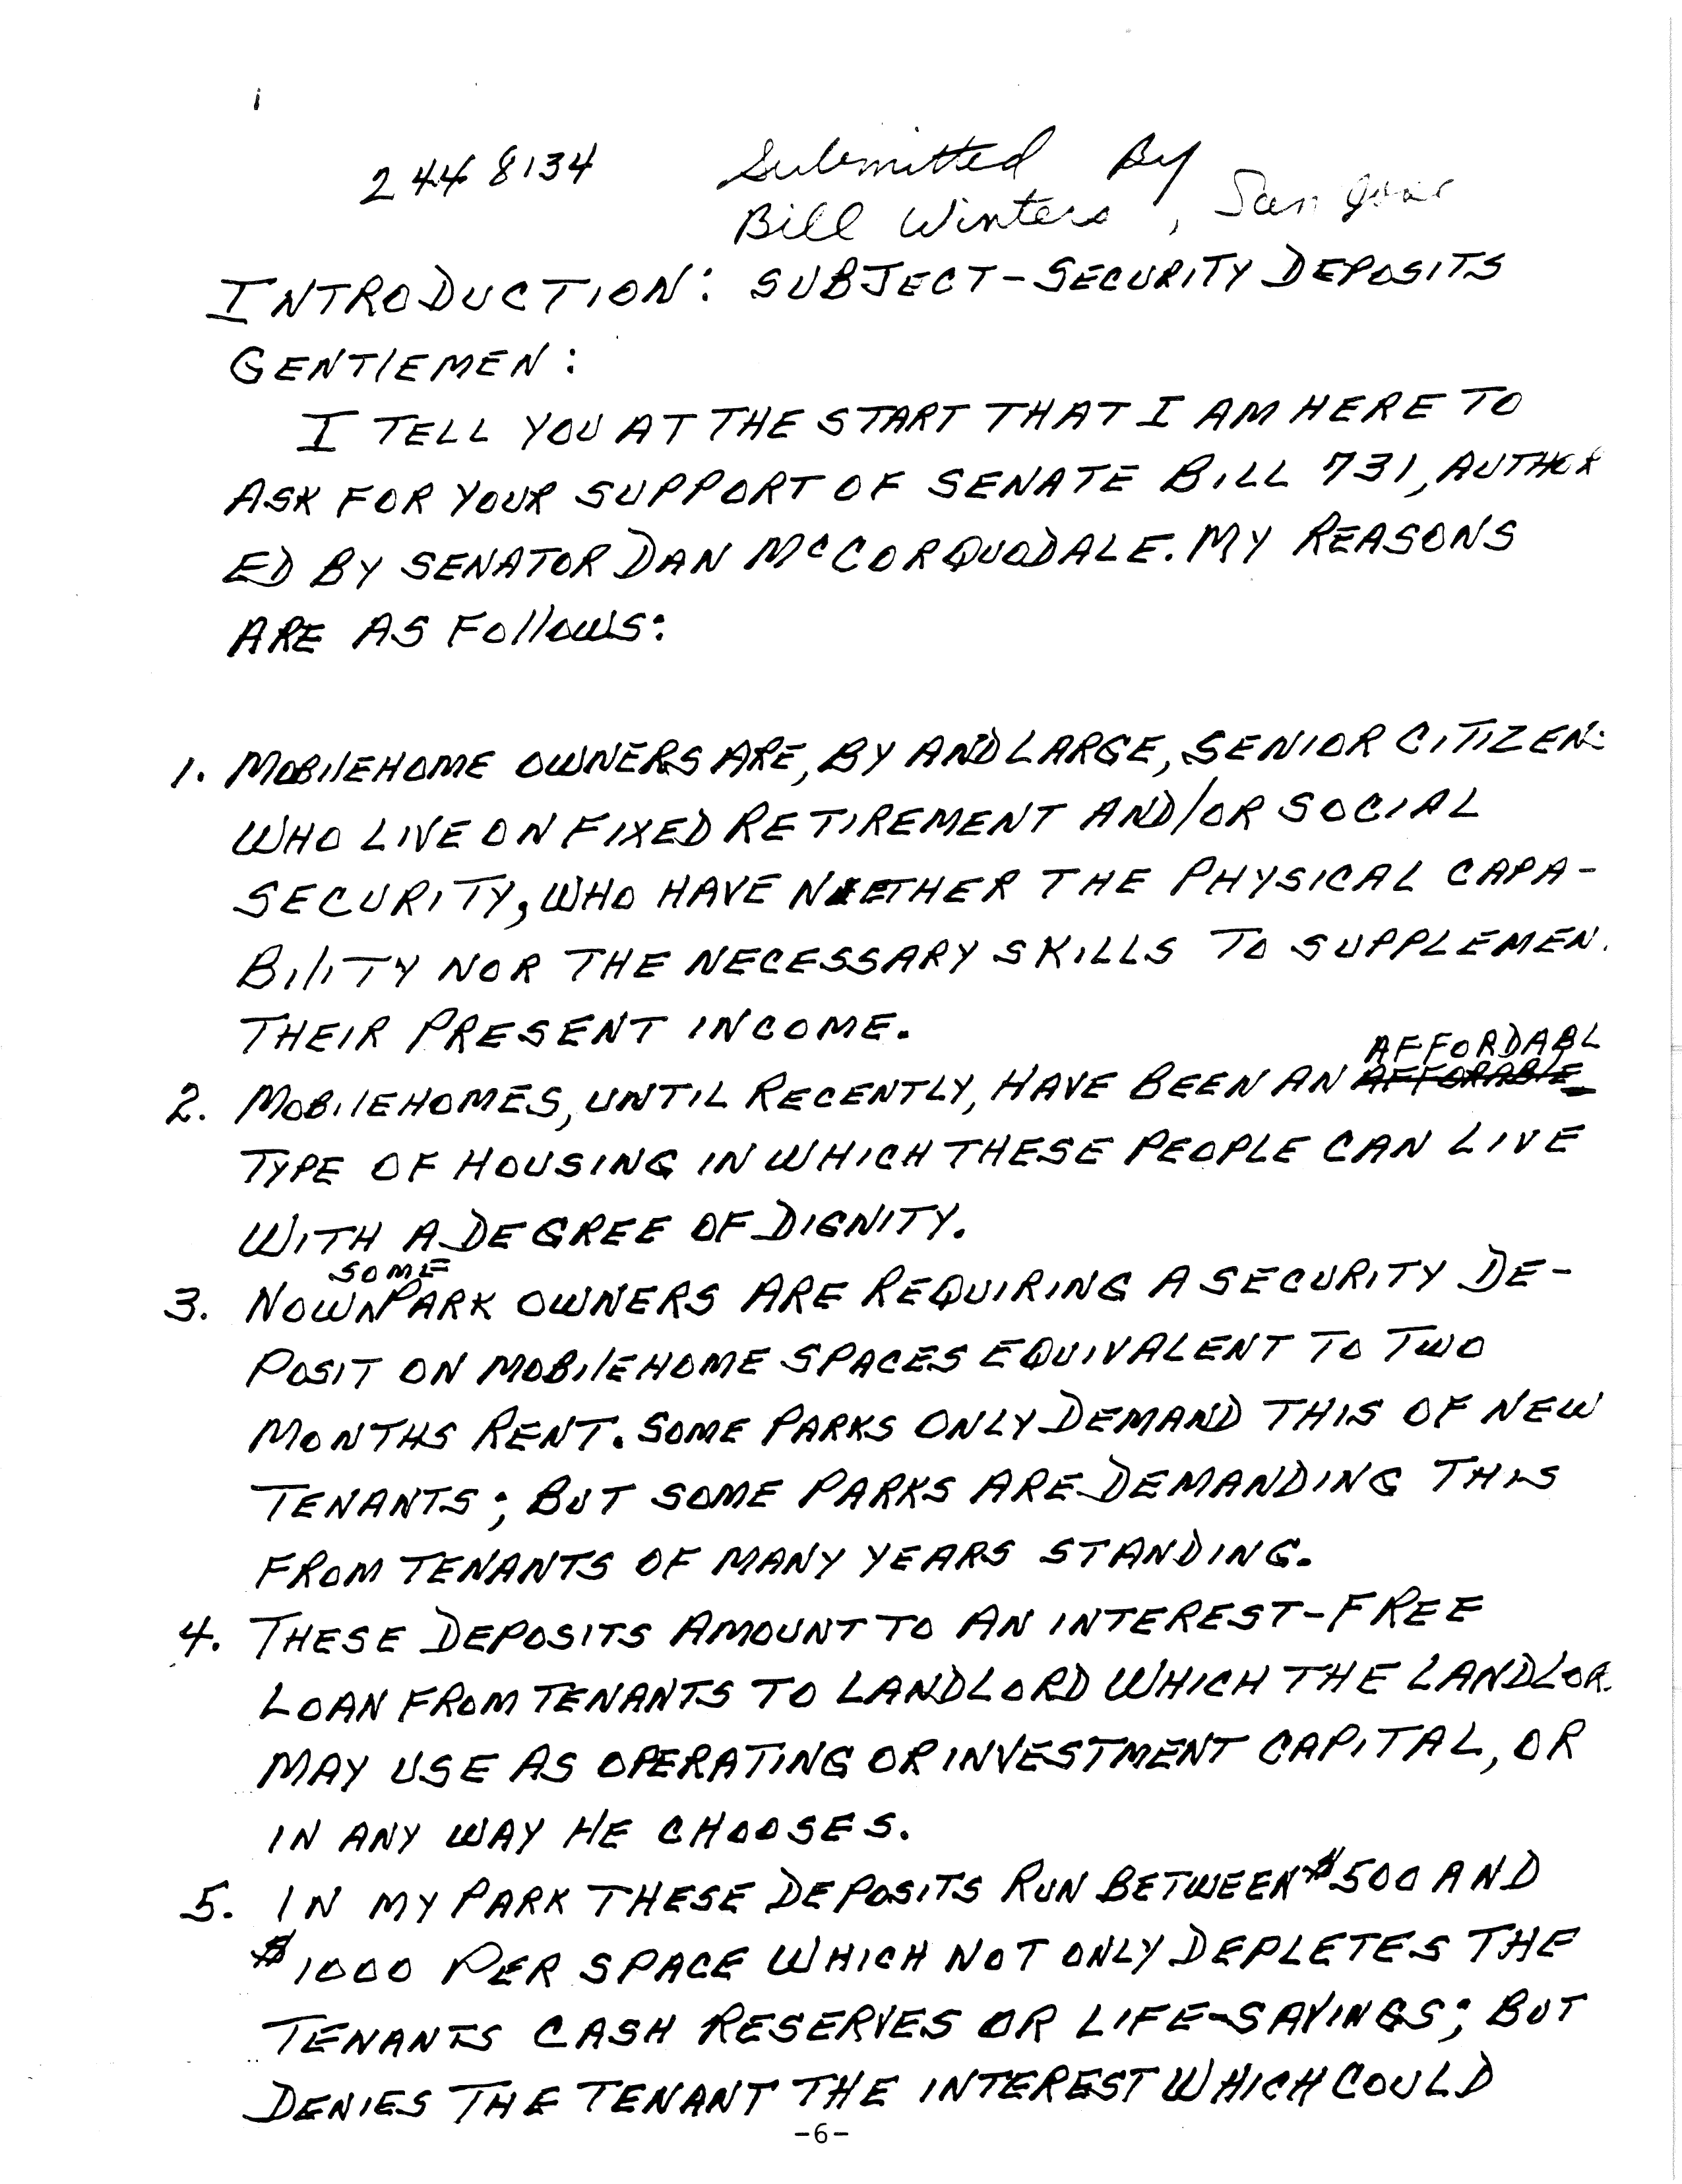 244 8134
Submitted By
Bill Winters, San Jose
INTRODUCTION: SUBJECT-SECURITY DEPOSITS
GENTLEMEN:
I TELL YOU AT THE START THAT I AM HERE TO
ASK FOR YOUR SUPPORT OF SENATE BILL 731, AUTHOR
ED BY SENATOR DAN McCORQUODALE. MY REASONS
ARE AS FOLLOWS:
1. MOBILEHOME OWNERS ARE, BY AND LARGE, SENIOR CITIZEN
WHO LIVE ON FIXED RETIREMENT AND/OR SOCIAL
SECURITY, WHO HAVE NEITHER THE PHYSICAL CAPA-
BILITY NOR THE NECESSARY SKILLS TO SUPPLEMEN
THEIR PRESENT INCOME.
2. MOBILEHOMES, UNTIL RECENTLY, HAVE BEEN AN AFFORABLE AFFORDABL
TYPE OF HOUSING IN WHICH THESE PEOPLE CAN LIVE
WITH A DEGREE OF DIGNITY.
3. NOW SOME PARK OWNERS ARE REQUIRING A SECURITY DE-
POSIT ON MOBILEHOME SPACES EQUIVALENT TO TWO
MONTHS RENT. SOME PARKS ONLY DEMAND THIS OF NEW
TENANTS; BUT SOME PARKS ARE DEMANDING THIS
FROM TENANTS OF MANY YEARS STANDING.
4. THESE DEPOSITS AMOUNT TO AN INTEREST-FREE
LOAN FROM TENANTS TO LANDLORD WHICH THE LANDLOR
MAY USE AS OPERATING OR INVESTMENT CAPITAL, OR
IN ANY WAY HE CHOOSES.
5. IN MY PARK THESE DEPOSITS RUN BETWEEN $500 AND
$1000 PER SPACE WHICH NOT ONLY DEPLETES THE
TENANTS CASH RESERVES OR LIFE-SAVINGS; BUT
DENIES THE TENANT THE INTEREST WHICH COULD
-6-